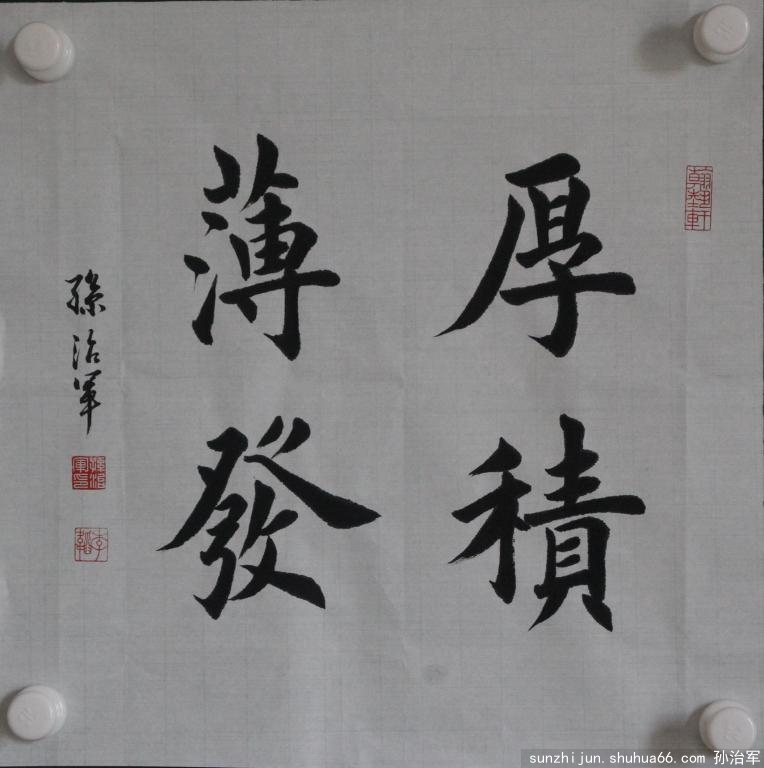 厚積
薄發
孫治軍
翰墨軒
孫治軍印
sunzhijun.shuhua66.com 孙治军